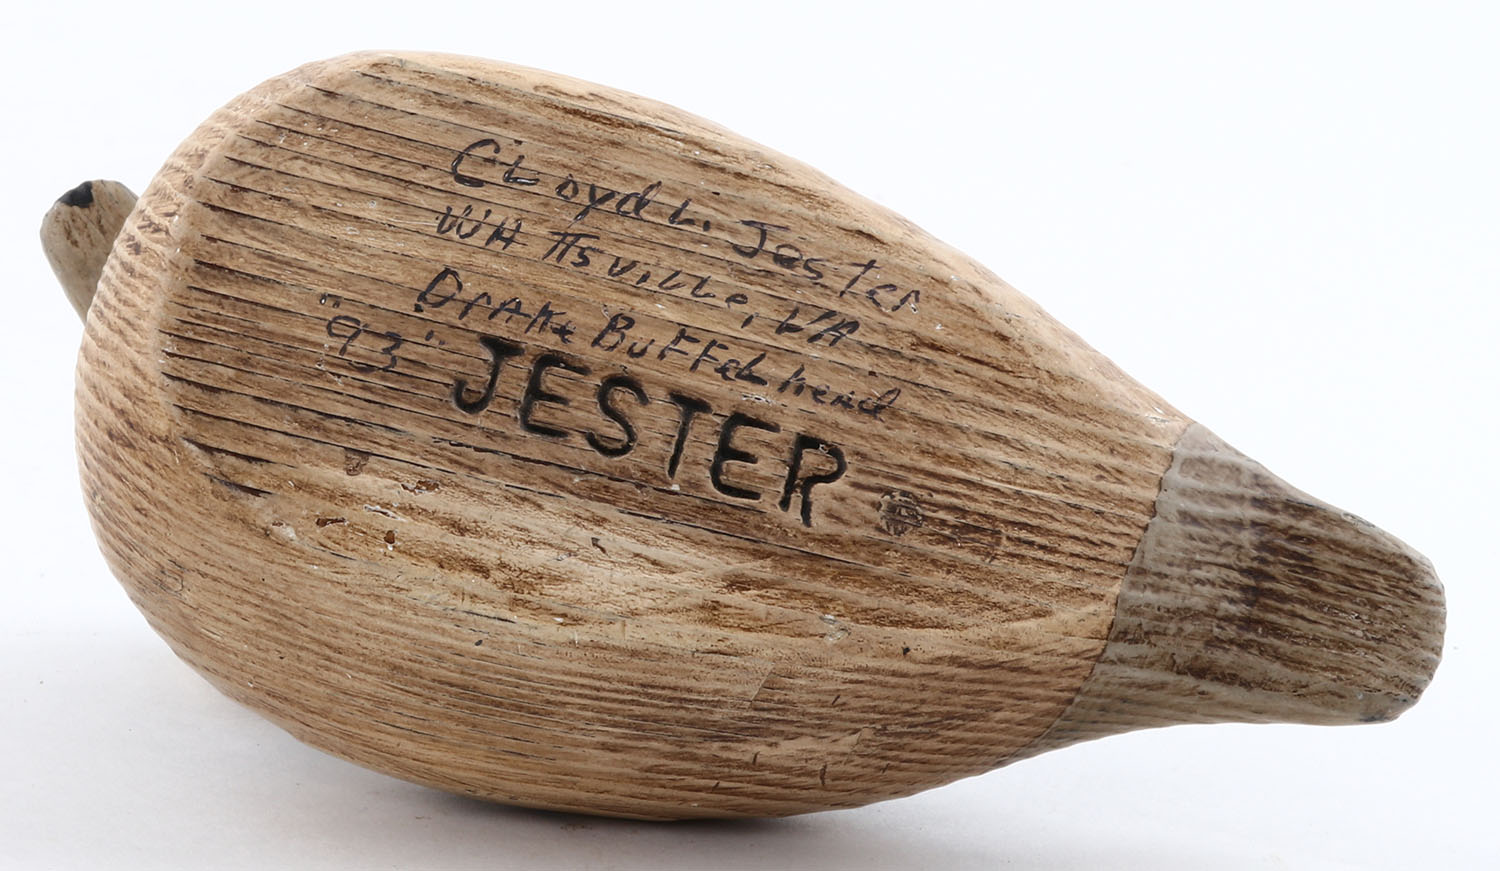 Cloyd L. Jester
WAttsville, VA
Drake Buffelhead
"93"
JESTER